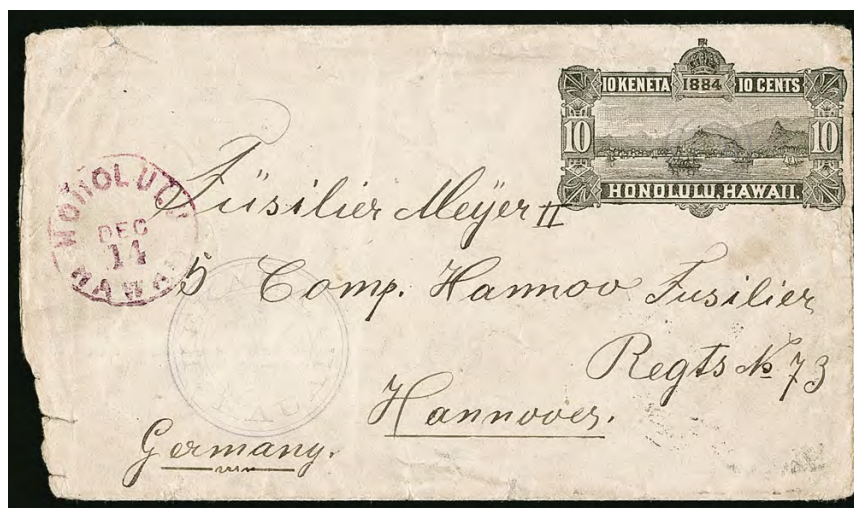 10 KENETA 1884 10 CENTS
10 10
HONOLULU, HAWAII.
HONOLULU
DEC
14
HAWAII
Füsilier Meÿer II
5 Comp. Hannov Fusilier
Regts No 73
Hannover.
Germany.
KAUAI